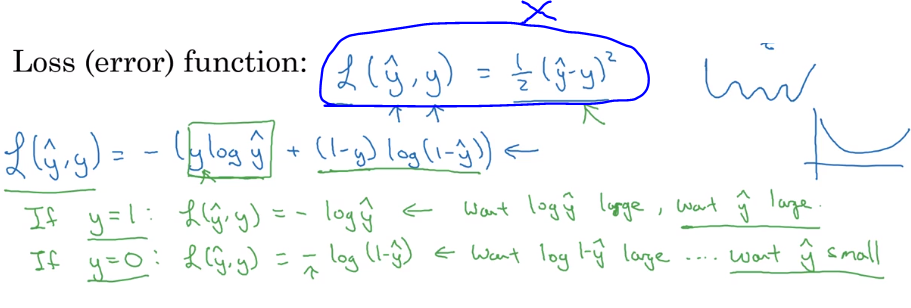 Loss (error) function: ℒ(ŷ, y) = ½(ŷ-y)²
ℒ(ŷ, y) = - (y log ŷ + (1-y) log(1-ŷ)) ←
If y=1: ℒ(ŷ, y) = - log ŷ ← want log ŷ large, want ŷ large.
If y=0: ℒ(ŷ, y) = - log (1-ŷ) ← want log 1-ŷ large .... want ŷ small